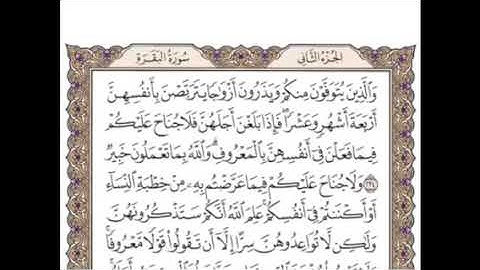 الجزء الثاني سورة البقرة
وَٱلَّذِينَ يُتَوَفَّوْنَ مِنكُمْ وَيَذَرُونَ أَزْوَٰجًا يَتَرَبَّصْنَ بِأَنفُسِهِنَّ
أَرْبَعَةَ أَشْهُرٍ وَعَشْرًا ۖ فَإِذَا بَلَغْنَ أَجَلَهُنَّ فَلَا جُنَاحَ عَلَيْكُمْ
فِيمَا فَعَلْنَ فِىٓ أَنفُسِهِنَّ بِٱلْمَعْرُوفِ ۗ وَٱللَّهُ بِمَا تَعْمَلُونَ خَبِيرٌ
٢٣٤ وَلَا جُنَاحَ عَلَيْكُمْ فِيمَا عَرَّضْتُم بِهِۦ مِنْ خِطْبَةِ ٱلنِّسَآءِ
أَوْ أَكْنَنتُمْ فِىٓ أَنفُسِكُمْ ۚ عَلِمَ ٱللَّهُ أَنَّكُمْ سَتَذْكُرُونَهُنَّ
وَلَٰكِن لَّا تُوَاعِدُوهُنَّ سِرًّا إِلَّآ أَن تَقُولُوا۟ قَوْلًا مَّعْرُوفًا ۚ